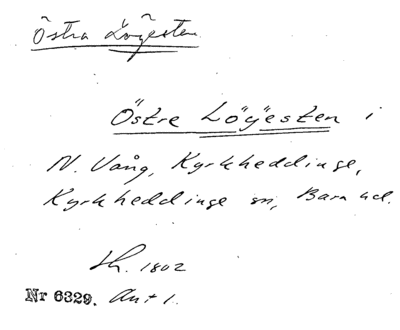 Östra Löÿesten
Östre Löÿesten i
N. Vång, Kyrkheddinge,
Kyrkheddinge sn, Bara hd.
Sk. 1802
Nr 6329. Ant 1.